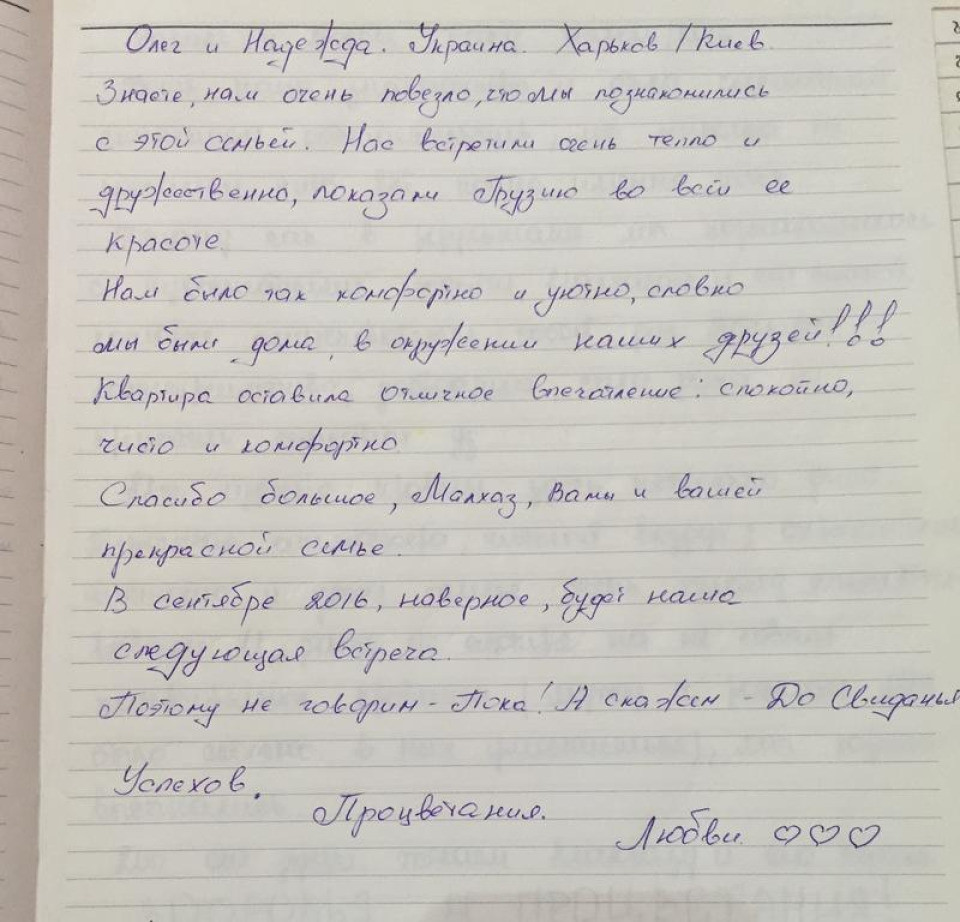 Олег и Надежда. Украина. Харьков / Киев.
Знаете, нам очень повезло, что мы познакомились
с этой семьёй. Нас встретили очень тепло и
дружественно, показали Грузию во всей ее
красоте.
Нам было так комфортно и уютно, словно
мы были дома, в окружении наших друзей!!!
Квартира оставила отличное впечатление: спокойно,
чисто и комфортно
Спасибо большое, Малхаз, Вам и вашей
прекрасной семье.
В сентябре 2016, наверное, будет наша
следующая встреча.
Поэтому не говорим - Пока! А скажем - До Свиданья
Успехов.
Процветания.
Любви ♡♡♡